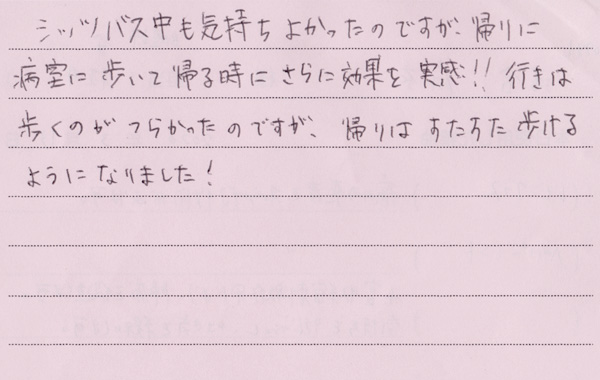 シッツバス中も気持ちよかったのですが、帰りに
病室に歩いて帰る時にさらに効果を実感!! 行きは
歩くのがつらかったのですが、帰りはすたすた歩ける
ようになりました!